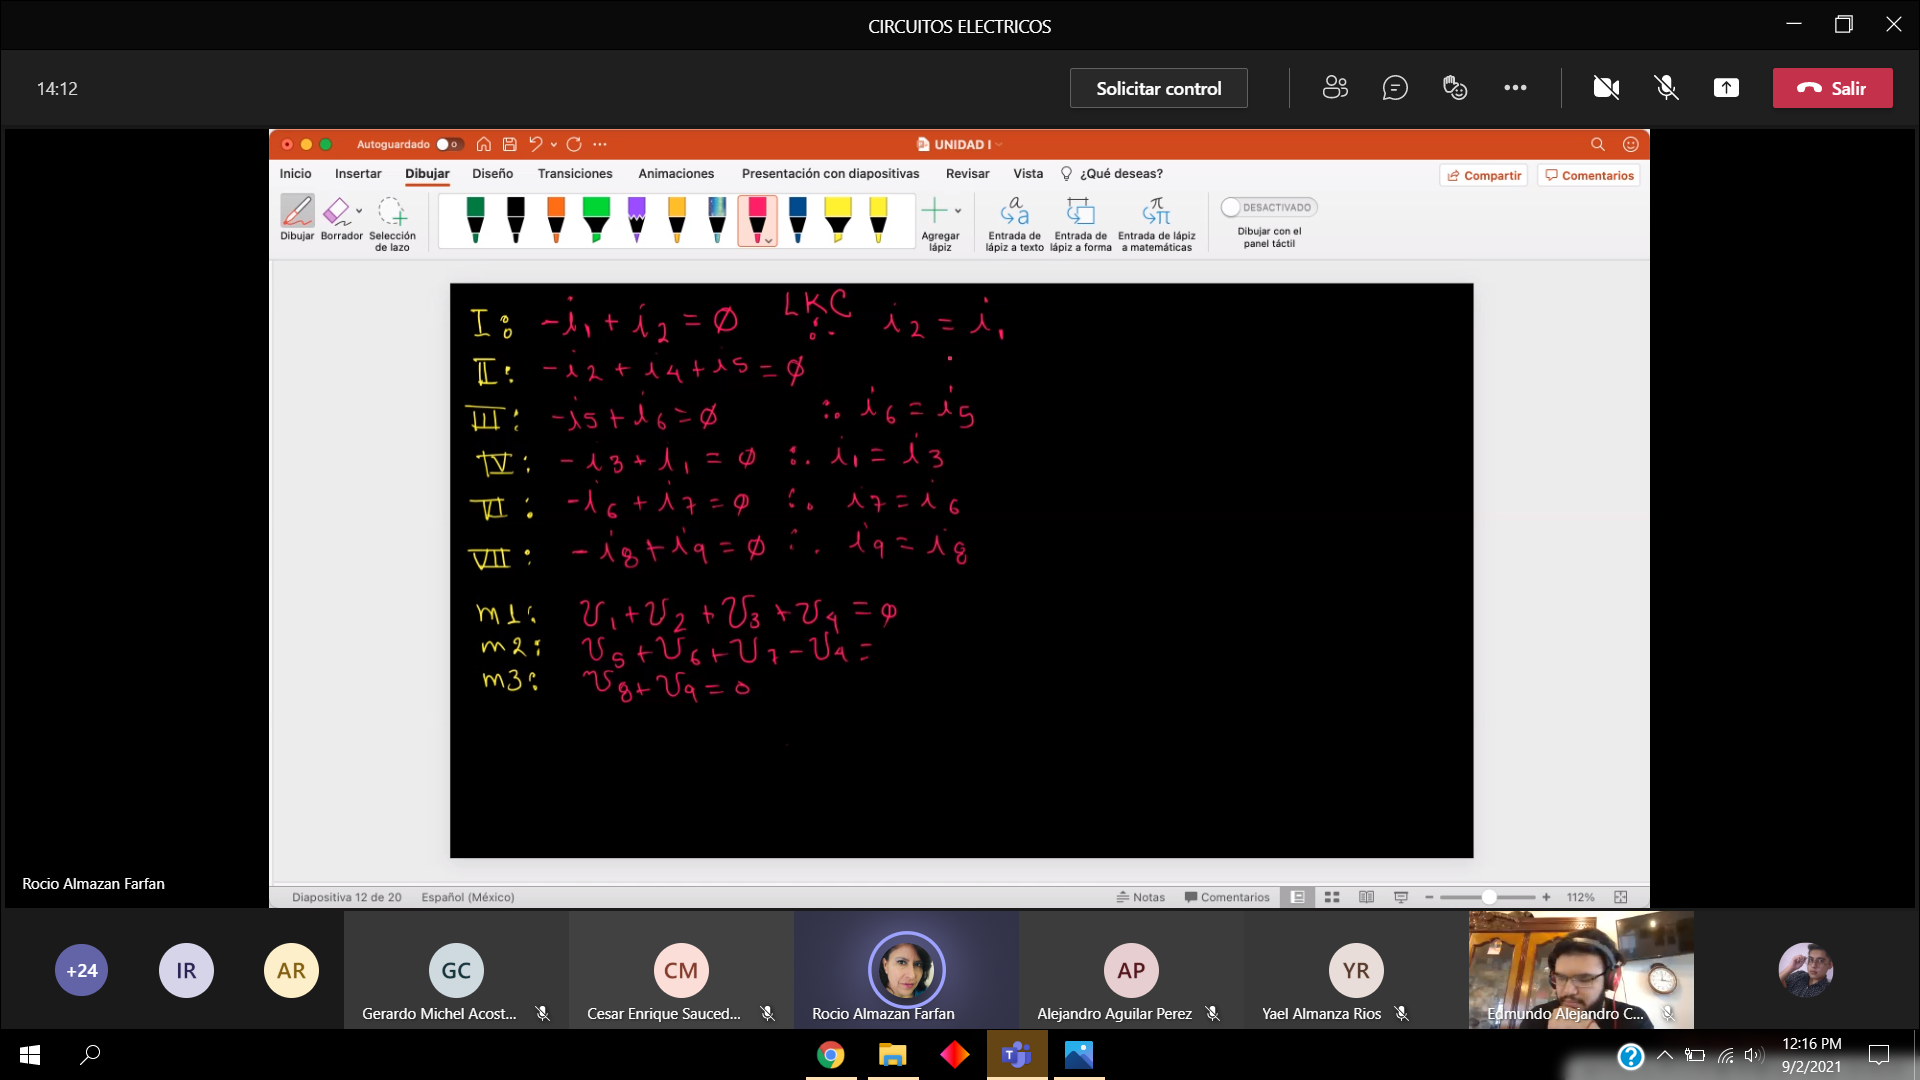 CIRCUITOS ELECTRICOS
14:12
Solicitar control
Salir
Autoguardado
UNIDAD I
Inicio Insertar Dibujar Diseño Transiciones Animaciones Presentación con diapositivas Revisar Vista ¿Qué deseas?
Compartir
Comentarios
Dibujar
Borrador
Selección de lazo
Agregar lápiz
Entrada de lápiz a texto
Entrada de lápiz a forma
Entrada de lápiz a matemáticas
DESACTIVADO
Dibujar con el panel táctil
I: -i₁ + i₂ = Ø LKC ∴ i₂ = i₁
II: -i₂ + i₄ + i₅ = Ø
III: -i₅ + i₆ = Ø ∴ i₆ = i₅
IV: -i₃ + i₁ = Ø ∴ i₁ = i₃
VI: -i₆ + i₇ = Ø ∴ i₇ = i₆
VII: -i₈ + i₉ = Ø ∴ i₉ = i₈
m1: V₁ + V₂ + V₃ + V₄ = Ø
m2: V₅ + V₆ + V₇ - V₄ =
m3: V₈ + V₉ = 0
Rocio Almazan Farfan
Diapositiva 12 de 20 Español (México)
Notas Comentarios 112%
+24 IR AR GC CM AP YR
Gerardo Michel Acost... Cesar Enrique Sauced... Rocio Almazan Farfan Alejandro Aguilar Perez Yael Almanza Rios Edmundo Alejandro C...
12:16 PM
9/2/2021